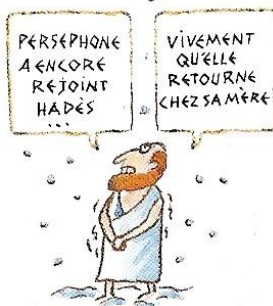 PERSEPHONE
A ENCORE
REJOINT
HADÈS
...
VIVEMENT
QU'ELLE
RETOURNE
CHEZ SA MÈRE!